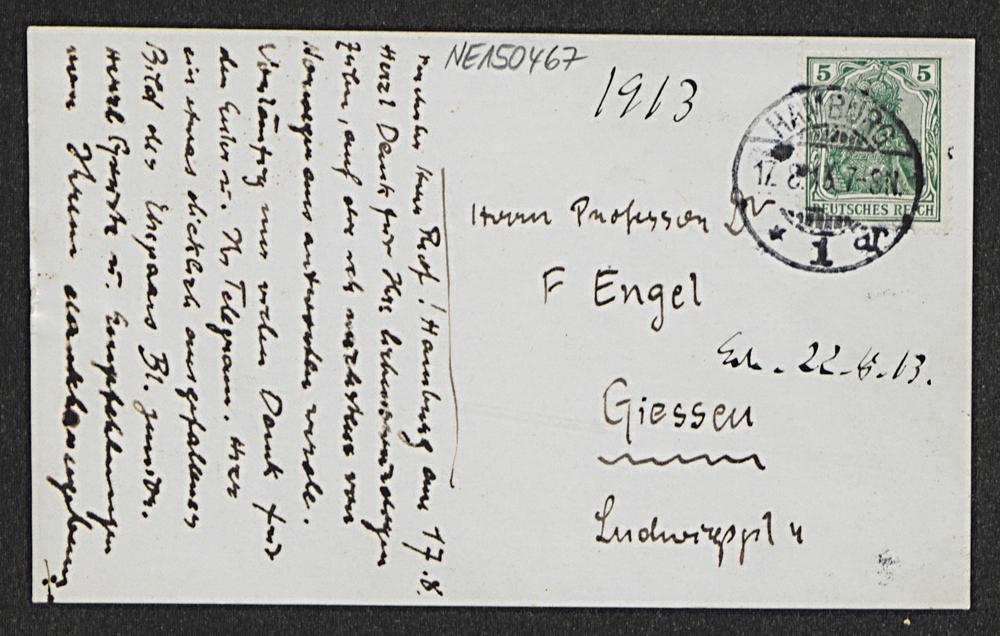 NE150467
1913
5 5
HAMBURG
17.8.13.7-8N.
DEUTSCHES REICH
* 1 ar
Herrn Professor Dr
F Engel
22.8.13.
Giessen
Ludwigspl 4
Herr Prof.! Hamburg am 17.8.
Herzl Dank für Ihre liebenswürdigen
Zeilen, auf die ich nächstens von
Norwegen aus antworten werde.
Vorläufig nur vielen Dank für
den Euler u. Ihr Telegram. Hier
ein etwas dicklich ausgefallenes
Bild des Ehepaars Bl. junior.
Herzl Grüsse u. Empfehlungen
von Ihrem